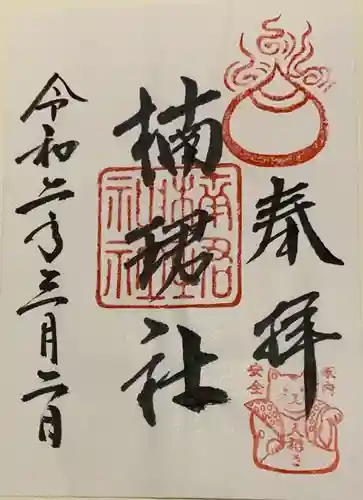 奉拝
楠珺社
令和二年三月二日
楠珺社
家内安全
人招き